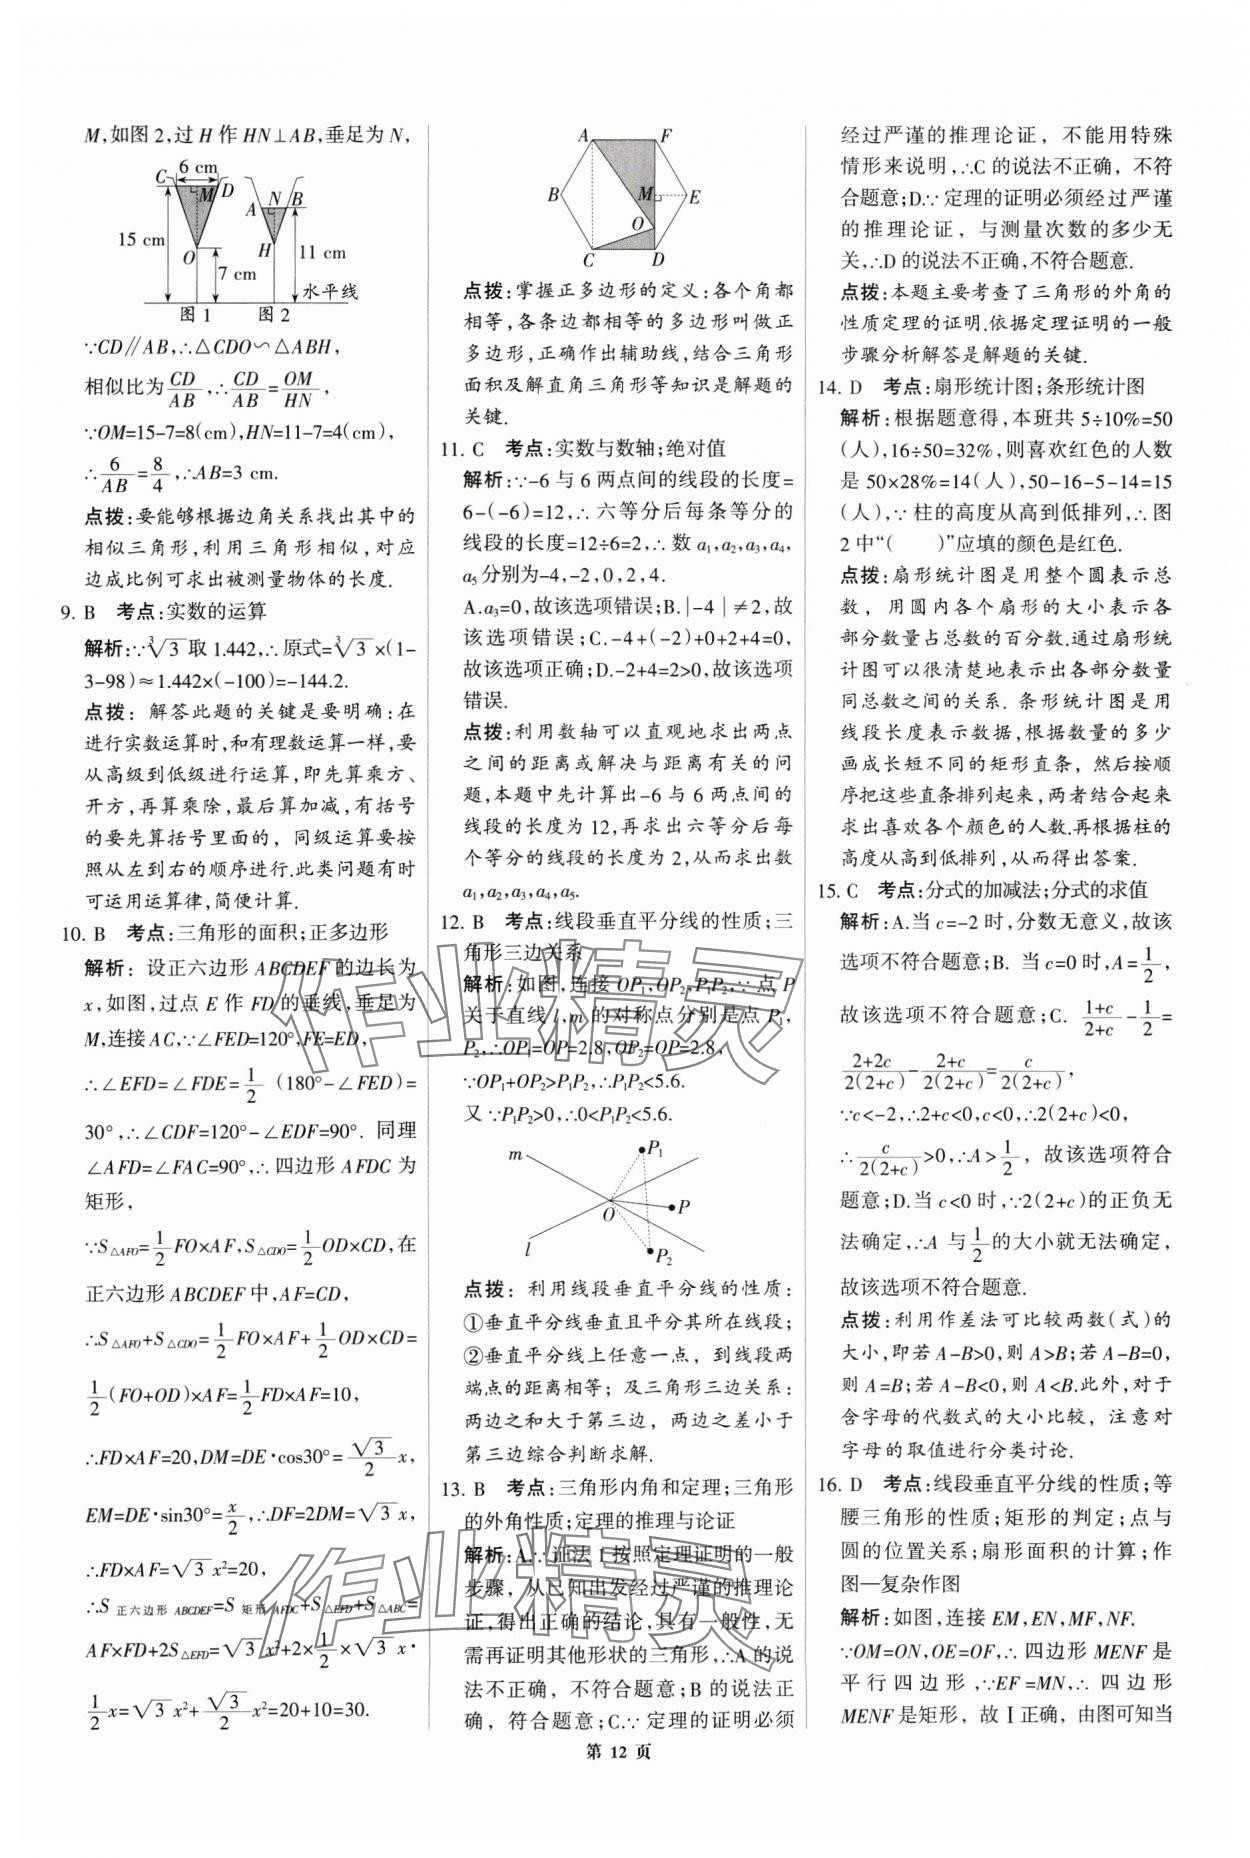 M,如图 2,过 H 作 HN⊥AB,垂足为 N,
C 6 cm D
M
A N B
15 cm
O
H
11 cm
7 cm
水平线
图 1 图 2
∵CD∥AB,∴△CDO∽△ABH,
相似比为CD/AB,∴CD/AB=OM/HN,
∵OM=15-7=8(cm),HN=11-7=4(cm),
∴6/AB=8/4,∴AB=3 cm.
点拨:要能够根据边角关系找出其中的
相似三角形,利用三角形相似,对应
边成比例可求出被测量物体的长度.
9. B 考点:实数的运算
解析:∵∛3取 1.442,∴原式=∛3×(1-
3-98)≈1.442×(-100)=-144.2.
点拨:解答此题的关键是要明确:在
进行实数运算时,和有理数运算一样,要
从高级到低级进行运算,即先算乘方、
开方,再算乘除,最后算加减,有括号
的要先算括号里面的,同级运算要按
照从左到右的顺序进行.此类问题有时
可运用运算律,简便计算.
10. B 考点:三角形的面积;正多边形
解析:设正六边形 ABCDEF 的边长为
x,如图,过点 E 作 FD 的垂线,垂足为
M,连接 AC,∵∠FED=120°,FE=ED,
∴∠EFD=∠FDE=1/2(180°-∠FED)=
30°,∴∠CDF=120°-∠EDF=90°. 同理
∠AFD=∠FAC=90°,∴四边形 AFDC 为
矩形,
∵S△AFO=1/2FO×AF,S△CDO=1/2OD×CD,在
正六边形 ABCDEF 中,AF=CD,
∴S△AFO+S△CDO=1/2FO×AF+1/2OD×CD=
1/2(FO+OD)×AF=1/2FD×AF=10,
∴FD×AF=20,DM=DE·cos30°=√3/2x,
EM=DE·sin30°=x/2,∴DF=2DM=√3x,
∴FD×AF=√3x²=20,
∴S正六边形ABCDEF=S矩形AFDC+S△EFD+S△ABC=
AF×FD+2S△EFD=√3x²+2×1/2×√3x·
1/2x=√3x²+√3/2x²=20+10=30.
A F
B M E
O
C D
点拨:掌握正多边形的定义:各个角都
相等,各条边都相等的多边形叫做正
多边形,正确作出辅助线,结合三角形
面积及解直角三角形等知识是解题的
关键.
11. C 考点:实数与数轴;绝对值
解析:∵-6 与 6 两点间的线段的长度=
6-(-6)=12,∴六等分后每条等分的
线段的长度=12÷6=2,∴数 a₁,a₂,a₃,a₄,
a₅分别为-4,-2,0,2,4.
A.a₃=0,故该选项错误;B.|-4|≠2,故
该选项错误;C.-4+(-2)+0+2+4=0,
故该选项正确;D.-2+4=2>0,故该选项
错误.
点拨:利用数轴可以直观地求出两点
之间的距离或解决与距离有关的问
题,本题中先计算出-6 与 6 两点间的
线段的长度为 12,再求出六等分后每
个等分的线段的长度为 2,从而求出数
a₁,a₂,a₃,a₄,a₅.
12. B 考点:线段垂直平分线的性质;三
角形三边关系
解析:如图,连接 OP₁,OP₂,P₁P₂,∵点 P
关于直线 l,m 的对称点分别是点 P₁,
P₂,∴OP₁=OP=2.8,OP₂=OP=2.8,
∵OP₁+OP₂>P₁P₂,∴P₁P₂<5.6.
又∵P₁P₂>0,∴0<P₁P₂<5.6.
m P₁
O P
l P₂
点拨:利用线段垂直平分线的性质:
①垂直平分线垂直且平分其所在线段;
②垂直平分线上任意一点,到线段两
端点的距离相等;及三角形三边关系:
两边之和大于第三边,两边之差小于
第三边综合判断求解.
13. B 考点:三角形内角和定理;三角形
的外角性质;定理的推理与论证
解析:A.∵证法 1 按照定理证明的一般
步骤,从已知出发经过严谨的推理论
证,得出正确的结论,具有一般性,无
需再证明其他形状的三角形,∴A 的说
法不正确,不符合题意;B 的说法正
确,符合题意;C.∵定理的证明必须
经过严谨的推理论证,不能用特殊
情形来说明,∴C 的说法不正确,不符
合题意;D.∵定理的证明必须经过严谨
的推理论证,与测量次数的多少无
关,∴D 的说法不正确,不符合题意.
点拨:本题主要考查了三角形的外角的
性质定理的证明.依据定理证明的一般
步骤分析解答是解题的关键.
14. D 考点:扇形统计图;条形统计图
解析:根据题意得,本班共 5÷10%=50
(人),16÷50=32%,则喜欢红色的人数
是 50×28%=14(人),50-16-5-14=15
(人),∵柱的高度从高到低排列,∴图
2 中“( )”应填的颜色是红色.
点拨:扇形统计图是用整个圆表示总
数,用圆内各个扇形的大小表示各
部分数量占总数的百分数.通过扇形统
计图可以很清楚地表示出各部分数量
同总数之间的关系.条形统计图是用
线段长度表示数据,根据数量的多少
画成长短不同的矩形直条,然后按顺
序把这些直条排列起来,两者结合起来
求出喜欢各个颜色的人数.再根据柱的
高度从高到低排列,从而得出答案.
15. C 考点:分式的加减法;分式的求值
解析:A.当 c=-2 时,分数无意义,故该
选项不符合题意;B. 当 c=0 时,A=1/2,
故该选项不符合题意;C. (1+c)/(2+c)-1/2=
(2+2c)/2(2+c)-(2+c)/2(2+c)=c/2(2+c),
∵c<-2,∴2+c<0,c<0,∴2(2+c)<0,
∴c/2(2+c)>0,∴A>1/2,故该选项符合
题意;D.当 c<0 时,∵2(2+c)的正负无
法确定,∴A 与1/2的大小就无法确定,
故该选项不符合题意.
点拨:利用作差法可比较两数(式)的
大小,即若 A-B>0,则 A>B;若 A-B=0,
则 A=B;若 A-B<0,则 A<B.此外,对于
含字母的代数式的大小比较,注意对
字母的取值进行分类讨论.
16. D 考点:线段垂直平分线的性质;等
腰三角形的性质;矩形的判定;点与
圆的位置关系;扇形面积的计算;作
图—复杂作图
解析:如图,连接 EM,EN,MF,NF.
∵OM=ON,OE=OF,∴四边形 MENF 是
平行四边形,∵EF=MN,∴四边形
MENF 是矩形,故Ⅰ正确,由图可知当
第 12 页
作业精灵
作业精灵